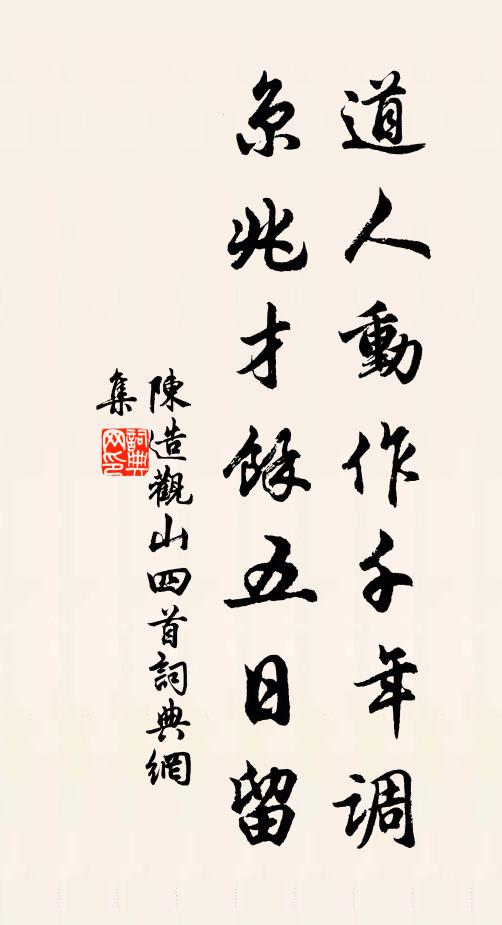 道人動作千年調
京兆才餘五日留
陳造觀山四首詞典網
集
詞典
网印